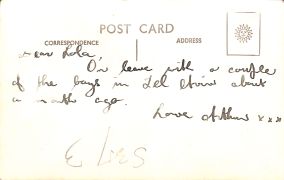 POST CARD
CORRESPONDENCE
ADDRESS
Dear Lola,
On leave with a couple
of the boys in Tel Aviv about
a month ago.
Love Arthur x x x